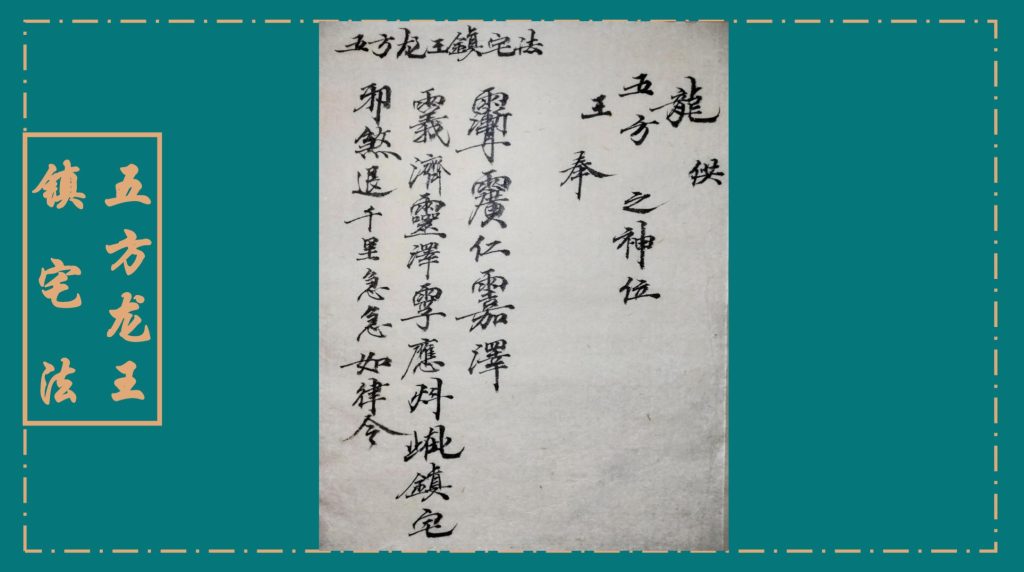 五方龙王
镇宅法
五方龙王鎮宅法
龍 供
五方 之神位
王 奉
仁 澤
濟靈澤 應 鎮宅
邪煞退千里急急如律令